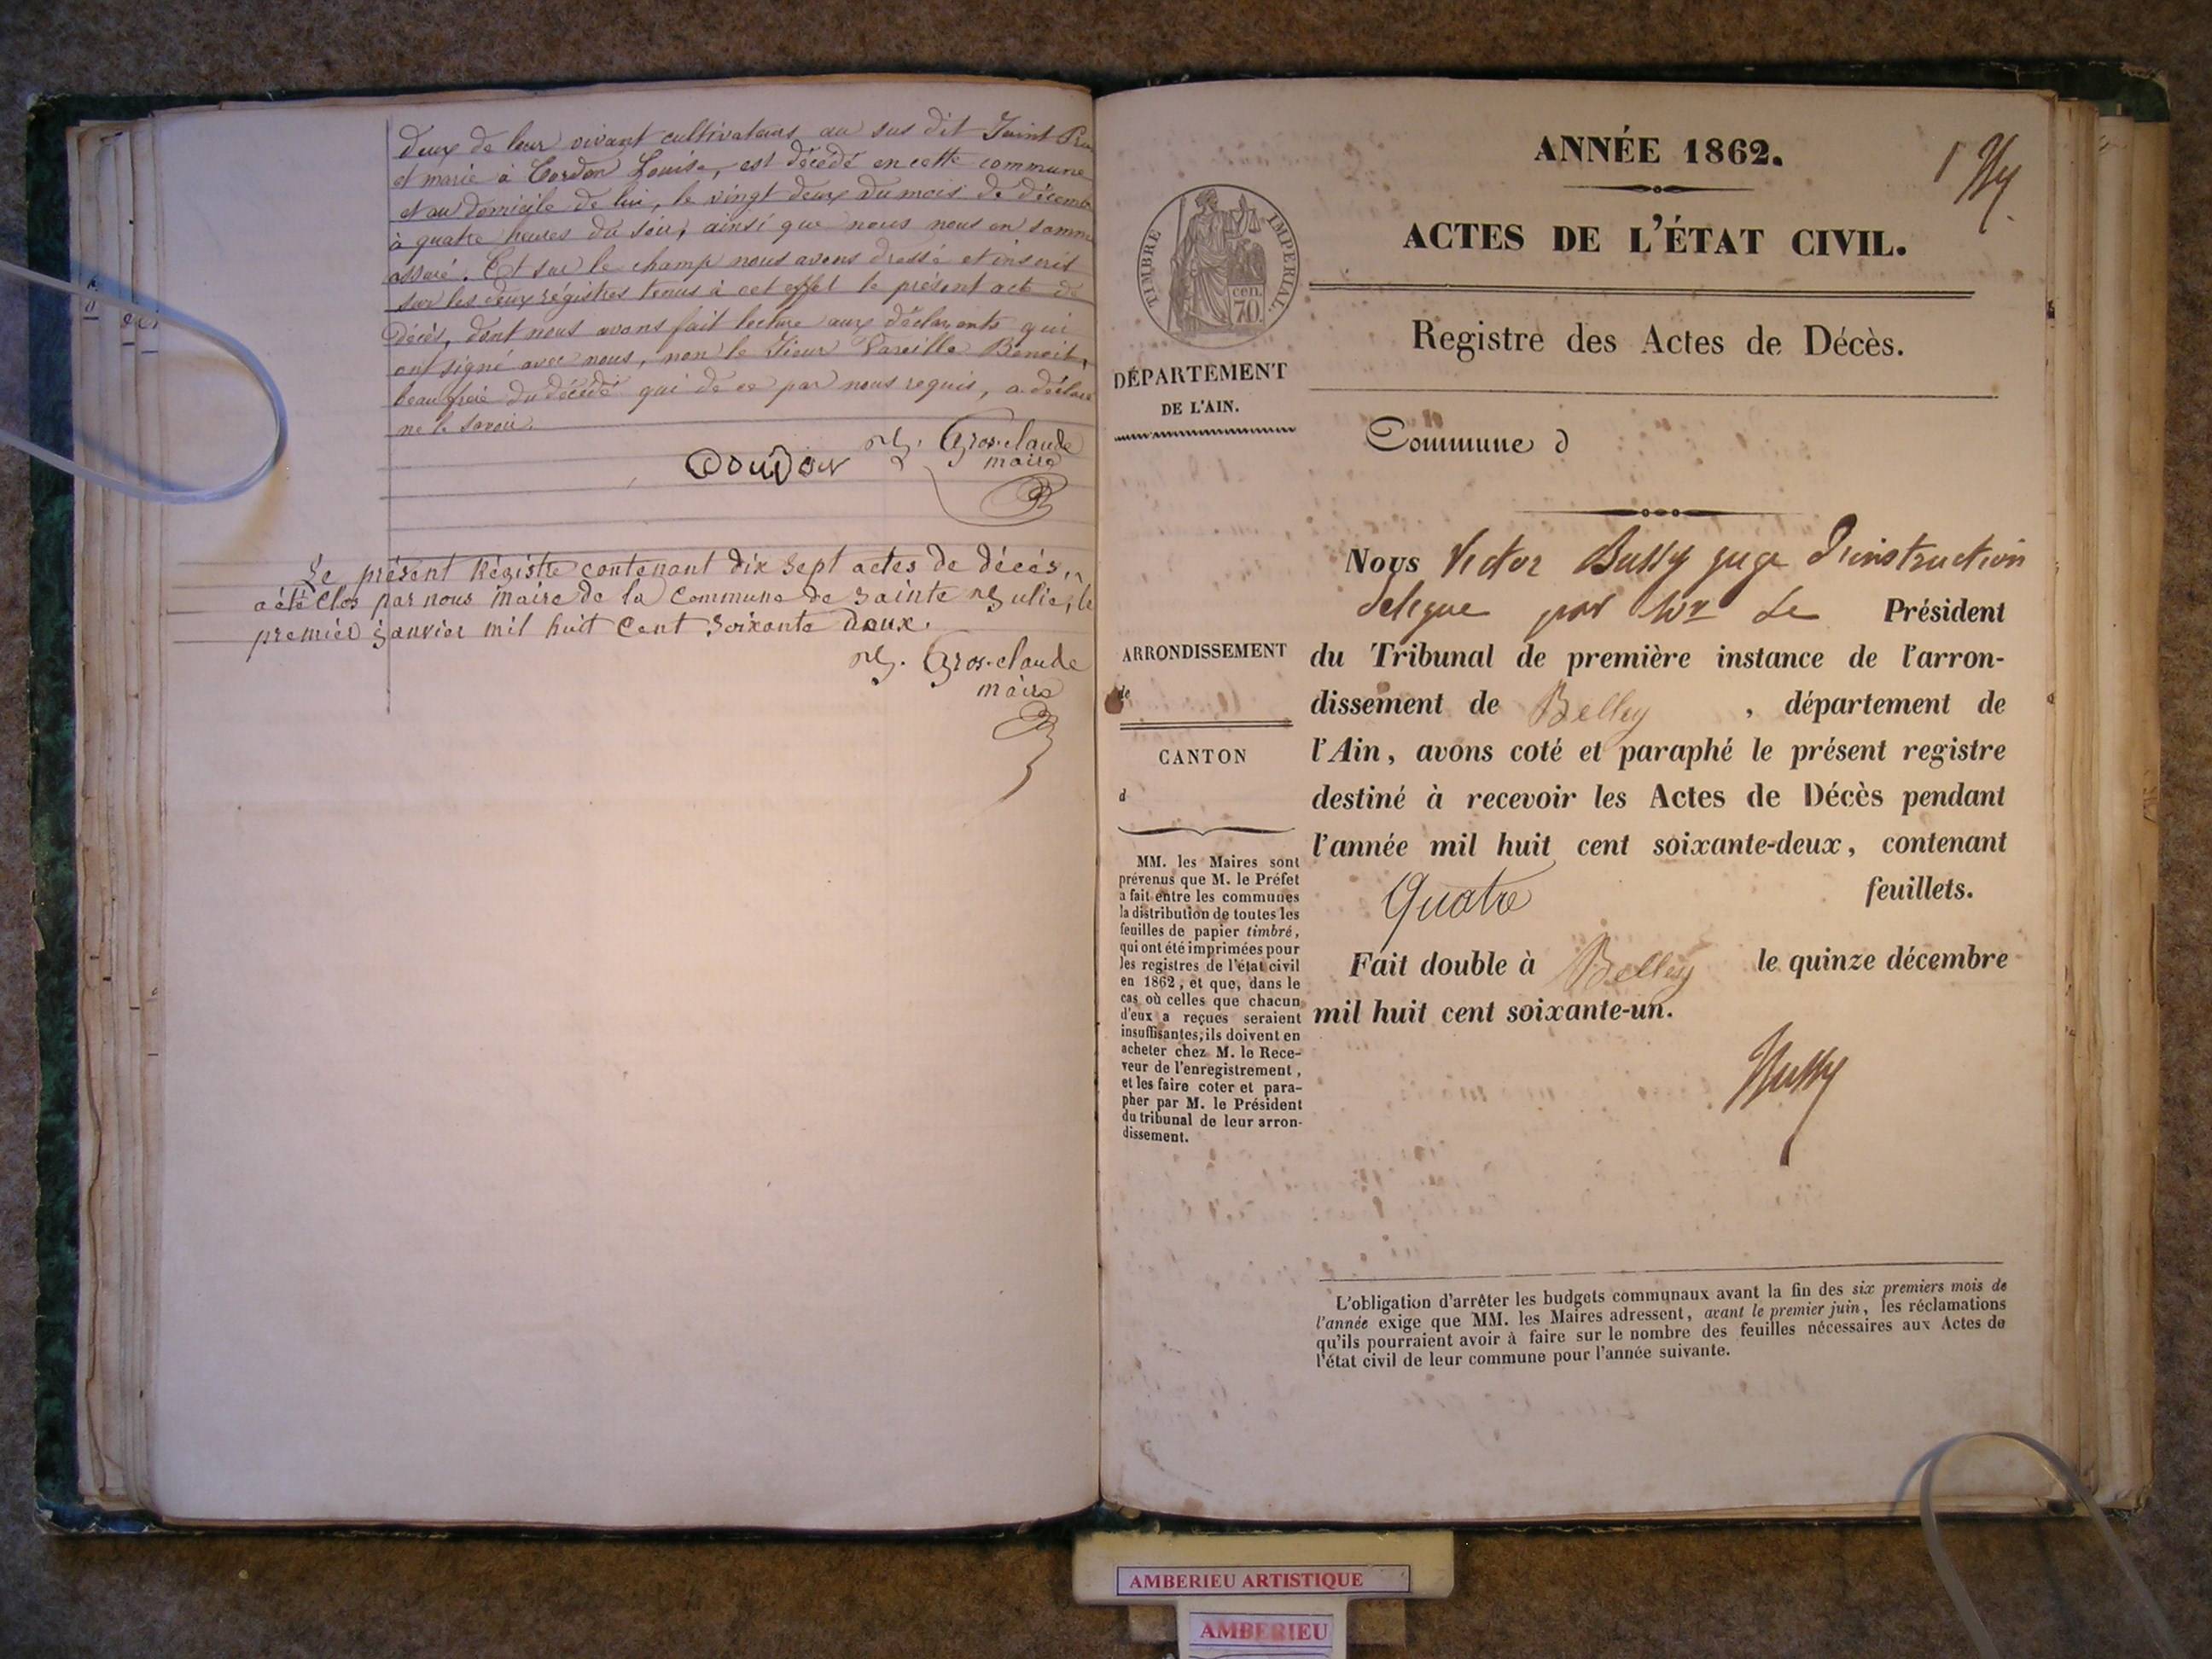 deux de leur vivant cultivateurs au sus dit Saint
et marié à Cordon Louise, est décédé en cette commune
et au domicile de lui, le vingt deux du mois de décemb
à quatre heures du soir, ainsi que nous nous en somm
assuré. Et sur le champ nous avons dressé et inscrit
sur les deux régistres tenus à cet effet le présent acte de
décès, dont nous avons fait lecture aux déclarants qui
ont signé avec nous, non le Sieur Benoit,
beau frère du décédé qui de ce par nous requis, a déclaré
ne le savoir.
Gros-claude
maire
Le présent Régistre contenant dix Sept actes de décés,
a été Clos par nous maire de la Commune de Sainte Julie, le
premier janvier mil huit Cent Soixante Deux.
Gros-claude
maire
ANNÉE 1862.
1
ACTES DE L'ÉTAT CIVIL.
TIMBRE IMPERIAL
70. cen.
Registre des Actes de Décès.
DÉPARTEMENT
DE L'AIN.
Commune d
Nous Victor Bussy juge d'instruction
délégué par Mr Le Président
du Tribunal de première instance de l'arron-
dissement de Belley , département de
l'Ain, avons coté et paraphé le présent registre
destiné à recevoir les Actes de Décès pendant
l'année mil huit cent soixante-deux, contenant
Quatre feuillets.
Fait double à Belley le quinze décembre
mil huit cent soixante-un.
Bussy
ARRONDISSEMENT
de
CANTON
d
MM. les Maires sont
prévenus que M. le Préfet
a fait entre les communes
la distribution de toutes les
feuilles de papier timbré,
qui ont été imprimées pour
les registres de l'état civil
en 1862, et que, dans le
cas où celles que chacun
d'eux a reçues seraient
insuffisantes, ils doivent en
acheter chez M. le Rece-
veur de l'enregistrement,
et les faire coter et para-
pher par M. le Président
du tribunal de leur arron-
dissement.
L'obligation d'arrêter les budgets communaux avant la fin des six premiers mois de
l'année exige que MM. les Maires adressent, avant le premier juin, les réclamations
qu'ils pourraient avoir à faire sur le nombre des feuilles nécessaires aux Actes de
l'état civil de leur commune pour l'année suivante.
AMBERIEU ARTISTIQUE
AMBERIEU